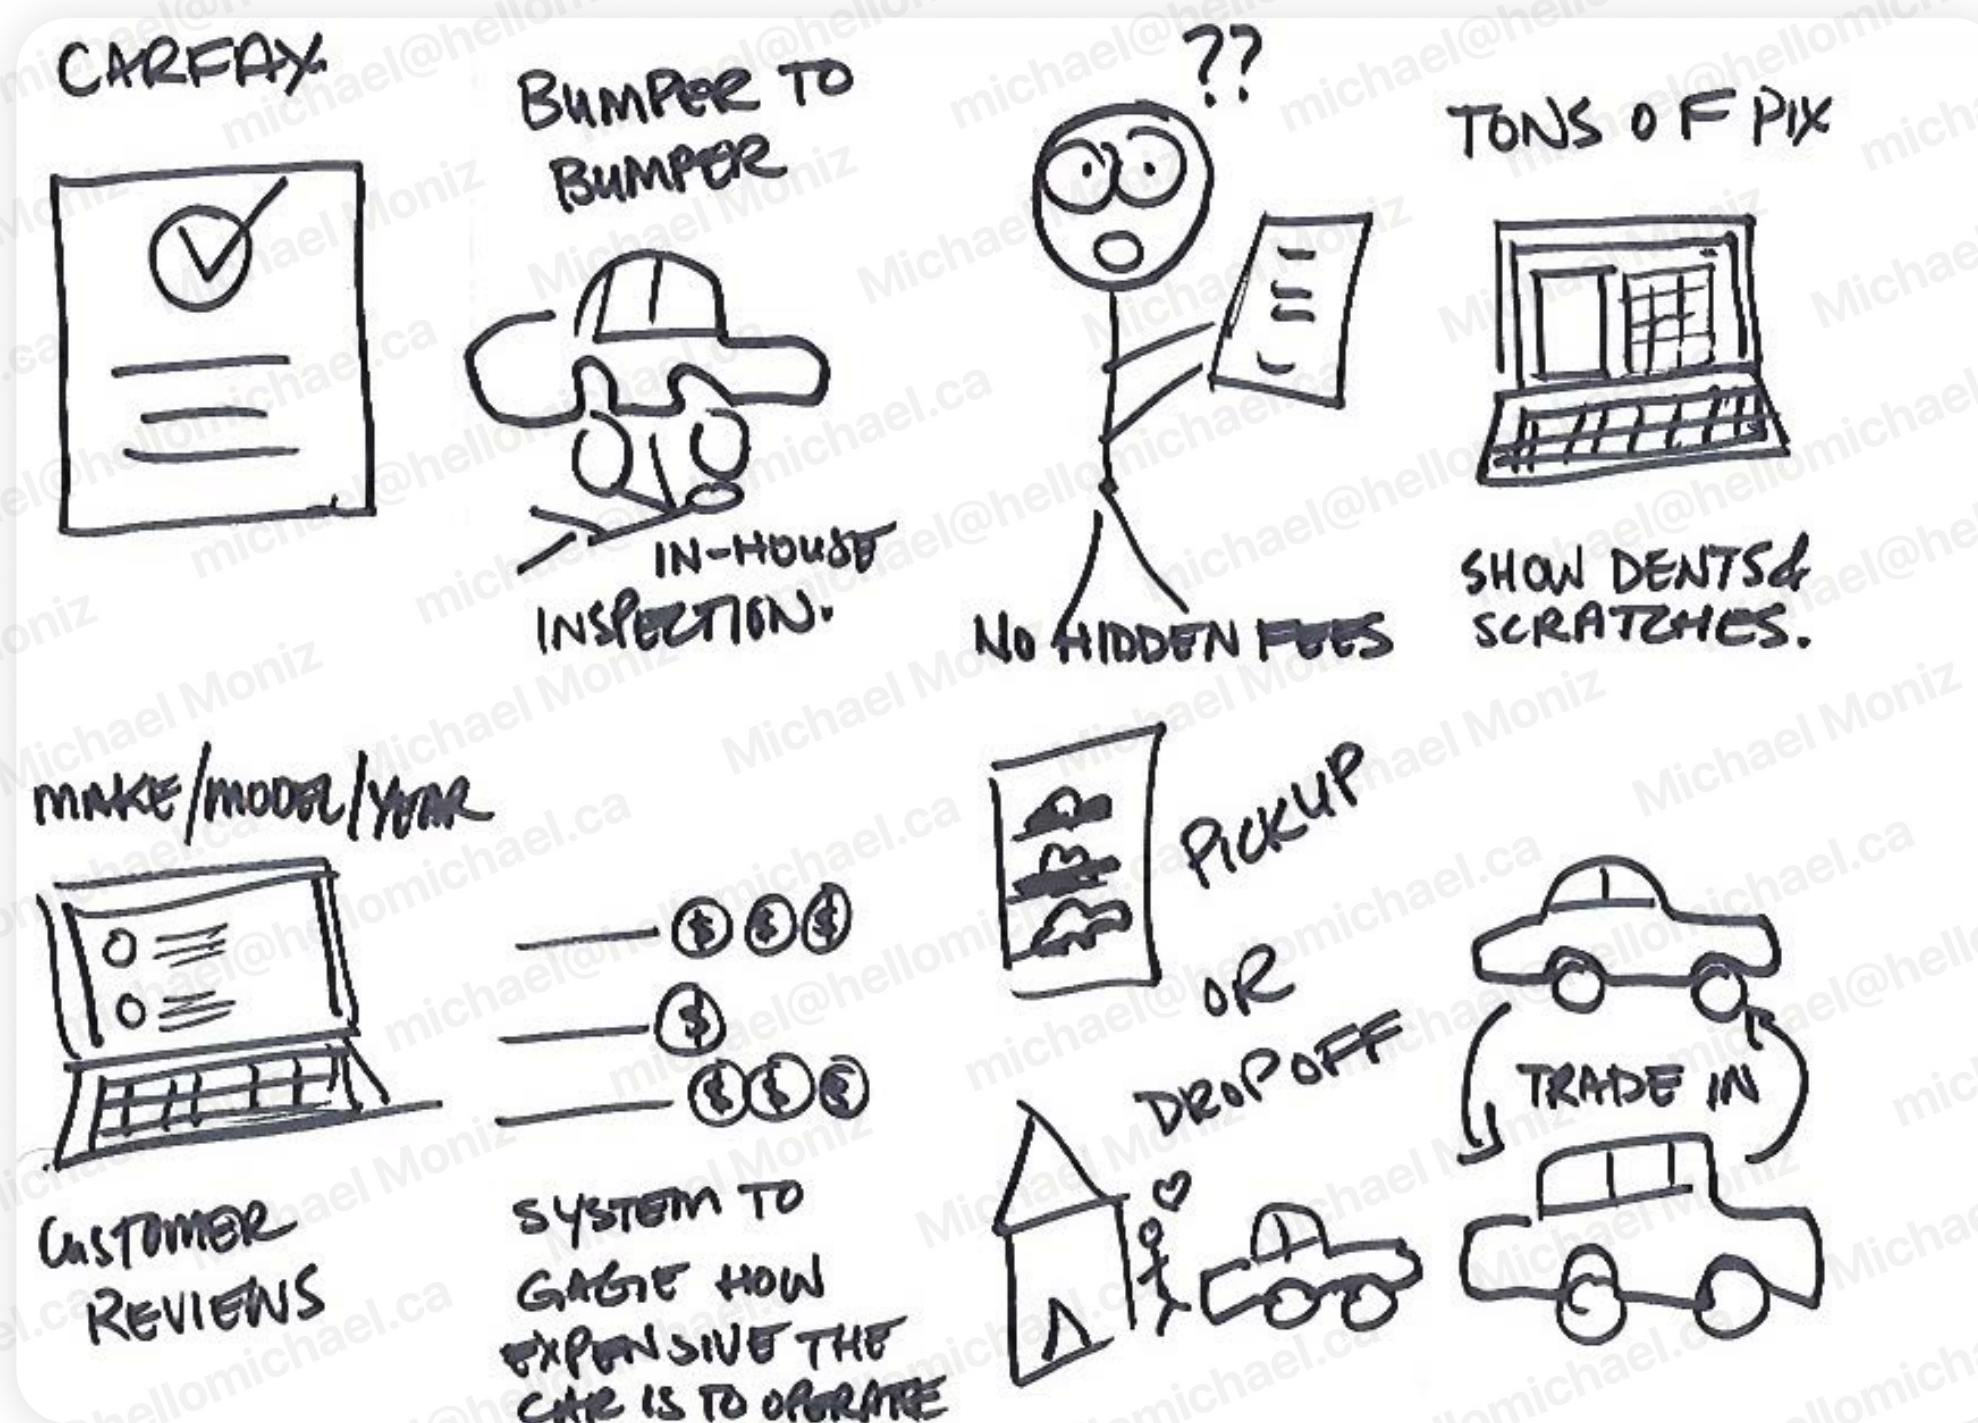 CARFAX.
BUMPER TO
BUMPER
IN-HOUSE
INSPECTION.
??
NO HIDDEN FEES
TONS OF PIX
SHOW DENTS &
SCRATCHES.
MAKE/MODEL/YEAR
CUSTOMER
REVIEWS
$ $ $
$
$ $ $
SYSTEM TO
GAGE HOW
EXPENSIVE THE
CAR IS TO OPERATE
PICKUP
OR
DROP OFF
TRADE IN
Michael Moniz
michael@hellomichael.ca